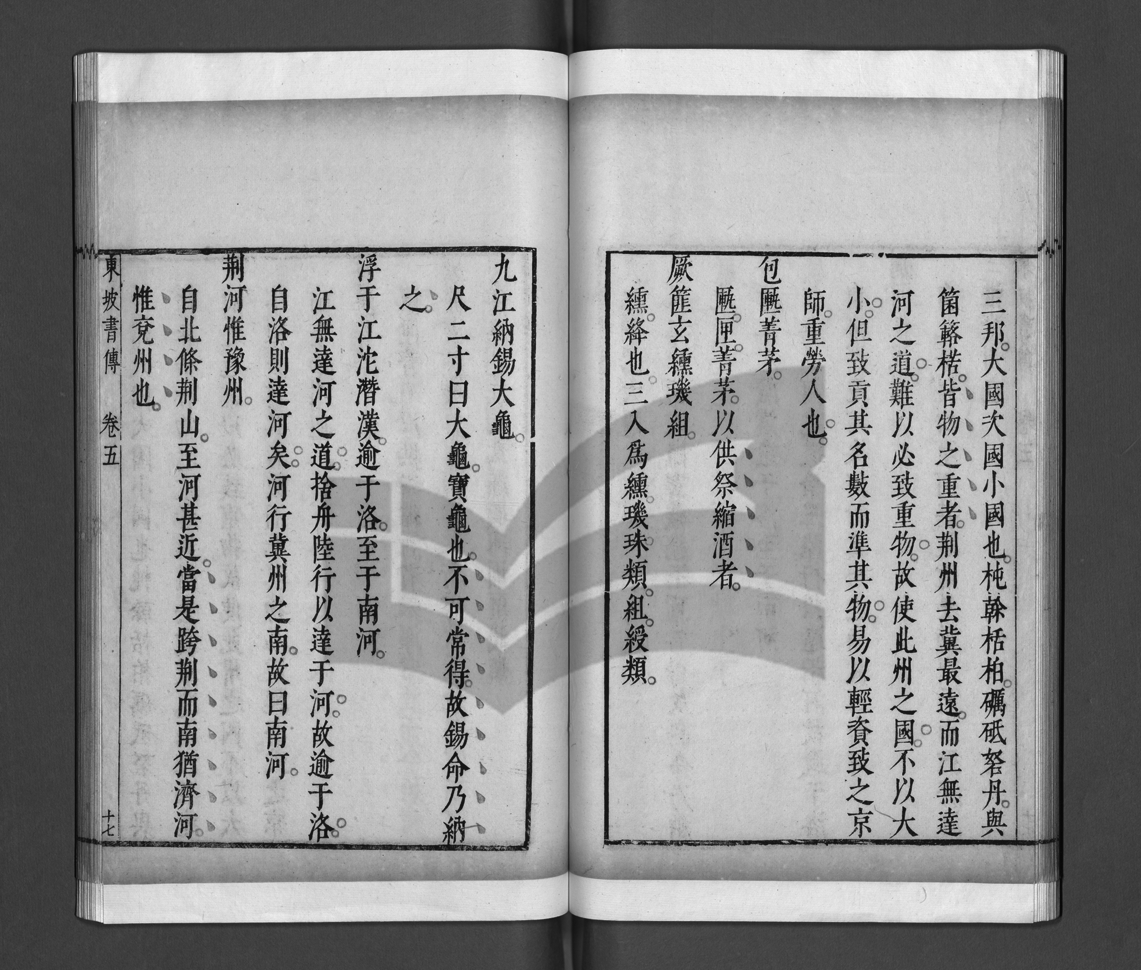 三邦。大國次國小國也。杶榦栝柏。礪砥砮丹。與
箘簵楛。皆物之重者。荆州去冀最遠。而江無達
河之道。難以必致重物。故使此州之國。不以大
小。但致貢其名數而準其物。易以輕賫致之京
師。重勞人也。
包匭菁茅。
匭。匣。菁茅。以供祭縮酒者。
厥篚玄纁璣組。
纁。絳也。三入爲纁。璣。珠類。組。綬類。
九江納錫大龜。
尺二寸曰大龜。寶龜也。不可常得。故錫命乃納
之。
浮于江沱潛漢。逾于洛。至于南河。
江無達河之道。捨舟陸行以達于河。故逾于洛。
自洛則達河矣。河行冀州之南。故曰南河。
荆河惟豫州。
自北條荆山。至河甚近。當是跨荆而南。猶濟河。
惟兗州也。
東坡書傳 卷五 十七